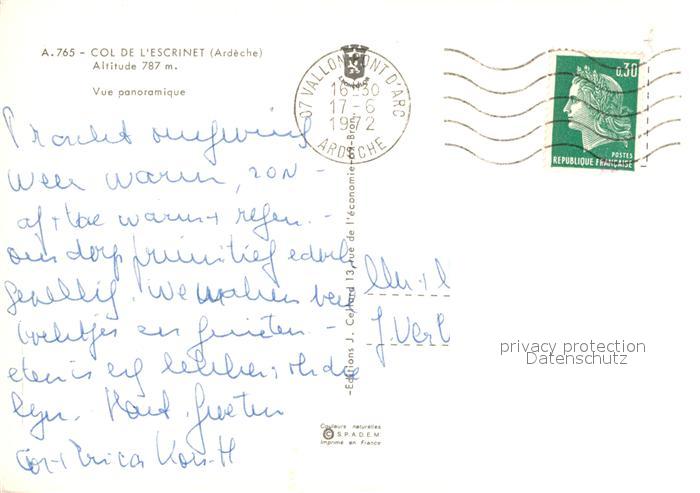 A.765 – COL DE L'ESCRINET (Ardèche)
Altitude 787 m.
Vue panoramique
07 VALLON PONT D'ARC
16-30
17-6
1972
ARDECHE
0,30
POSTES
REPUBLIQUE FRANÇAISE
Pracht omgeving
Weer warm, zon –
af + toe warm + regen. –
ons dorp primitief edoch
gezellig. We maken veel
tochtjes en genieten. –
eten is erg lekker,
Hart. Groeten
Cor +
J. Ver
-Editions J. Cellard 13, rue de l'économie-69-Bron-
Couleurs naturelles
© S.P.A.D.E.M.
Imprimé en France
privacy protection
Datenschutz